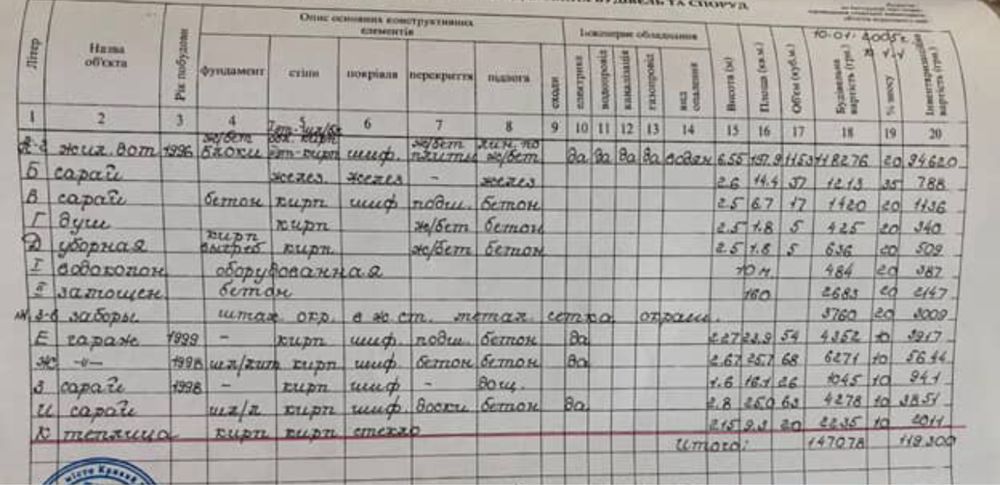 БУДІВЕЛЬ ТА СПОРУД
10.01.2005г.
Літер Назва об'єкта Рік побудови Опис основних конструктивних елементів Інженерне обладнання Висота (м) Площа (кв.м.) Об'єм (куб.м.) Будівельна вартість (грн.) % зносу Інвентаризаційна вартість (грн.)
фундамент стіни покрівля перекриття підлога сходи електрика водопровід каналізація газопровід вид опалення
1 2 3 4 5 6 7 8 9 10 11 12 13 14 15 16 17 18 19 20
ж/бет кирп ж/бет лин. по
А-2 жил. дот 1996 блоки кирп шиф. плиты ж/бет да да да да водян 6.55 197.9 1153 118276 20 94620
Б сарай желез. желез - желез 2.6 14.4 37 1213 35 788
В сарай бетон кирп шиф подш. бетон 2.5 6.7 17 1420 20 1136
Г душ кирп ж/бет бетон 2.5 1.8 5 425 20 340
кирп
Д уборная выгреб кирп. ж/бет бетон 2.5 1.8 5 636 20 509
I водоколон оборудованная 10 м. 484 20 387
II затощен. бетон 160 2683 20 2147
заборы штах. окр. в ж. ст. метал. сетка окраш. 3760 20 3009
Е гараж 1999 - кирп шиф. подш. бетон да 2.27 23.9 54 4352 10 3917
Ж -"- 1998 шл/кирп кирп шиф. бетон бетон да 2.67 25.7 68 6271 10 5644
З сарай 1998 - кирп шиф - дощ. 1.6 16.1 26 1045 10 941
И сарай шл/л кирп шиф. доски бетон да 2.8 25.0 63 4278 10 3851
К теплица кирп кирп стекло 2.15 9.3 20 2235 10 2011
Итого: 147078 119300
місто Кривий